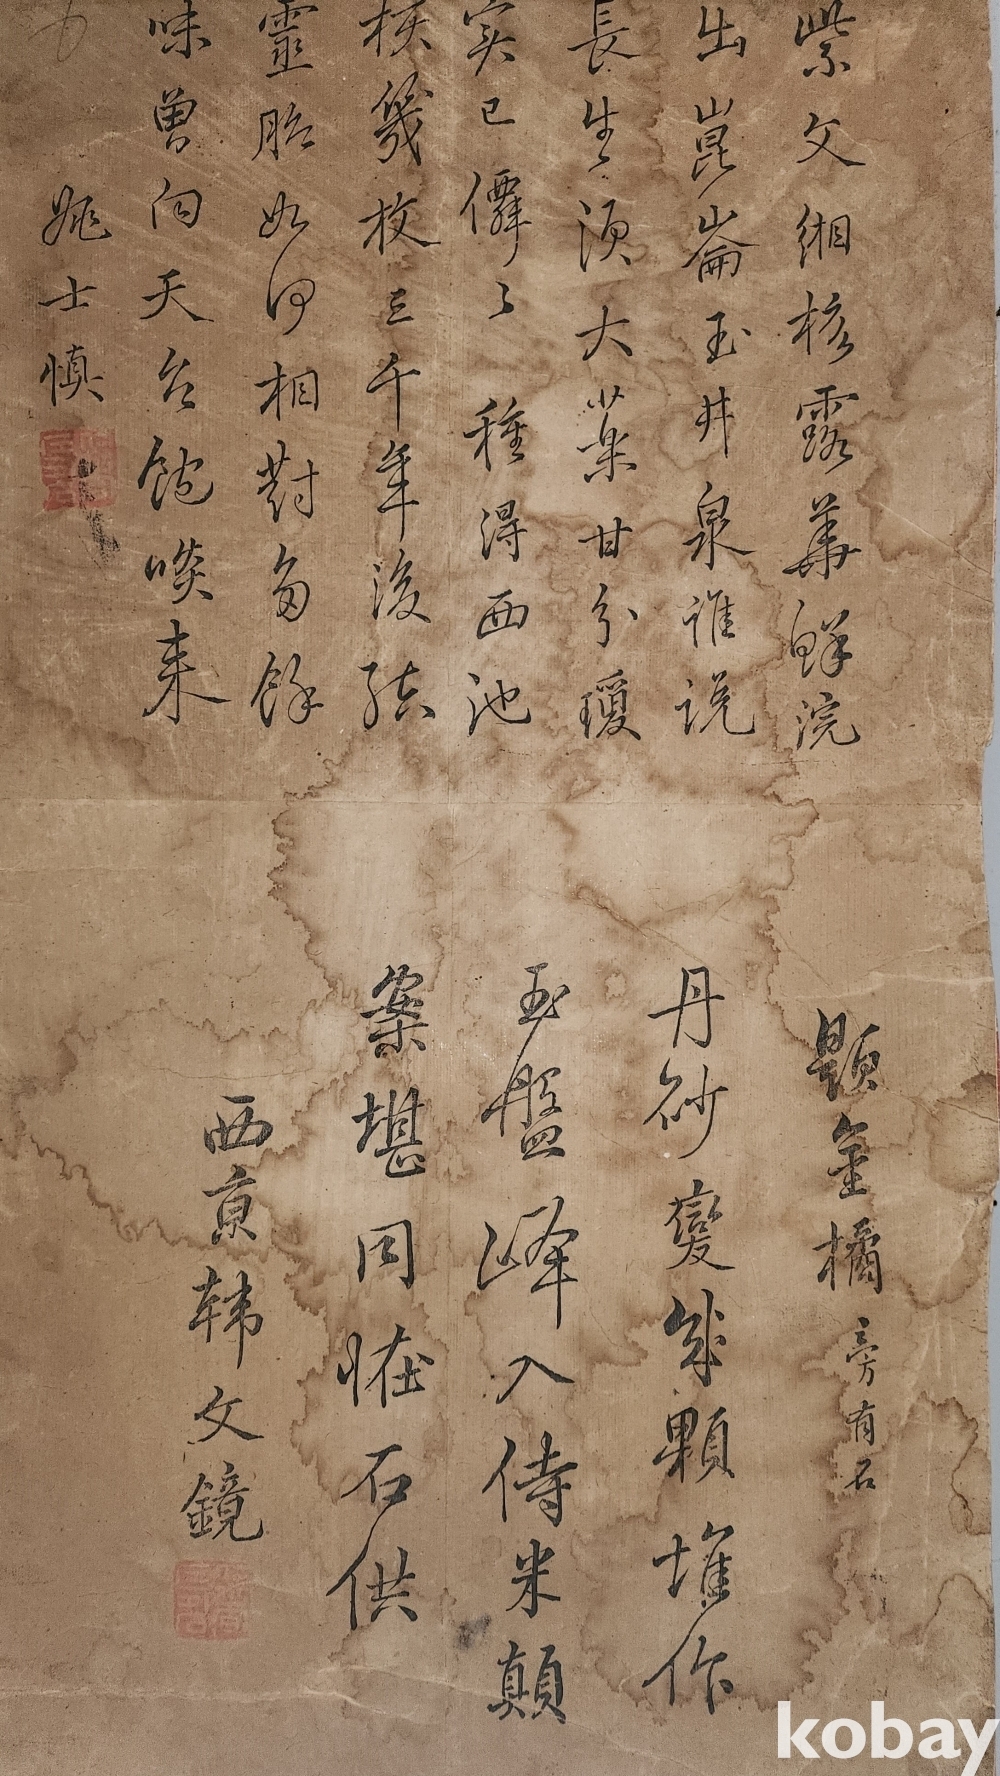 紫文緗核露華鮮浣
出崑崙玉井泉誰説
長生須大藥甘分瓊
実已僊々種得西池
核幾枚三千年後結
靈胎如何相對當餘
味曽向天台飽啖来
姚士慎
題金橘旁有石
丹砂變幾顆堆作
玉盤峰入侍米顛
案堪同怪石供
西京韩文鏡
kobay